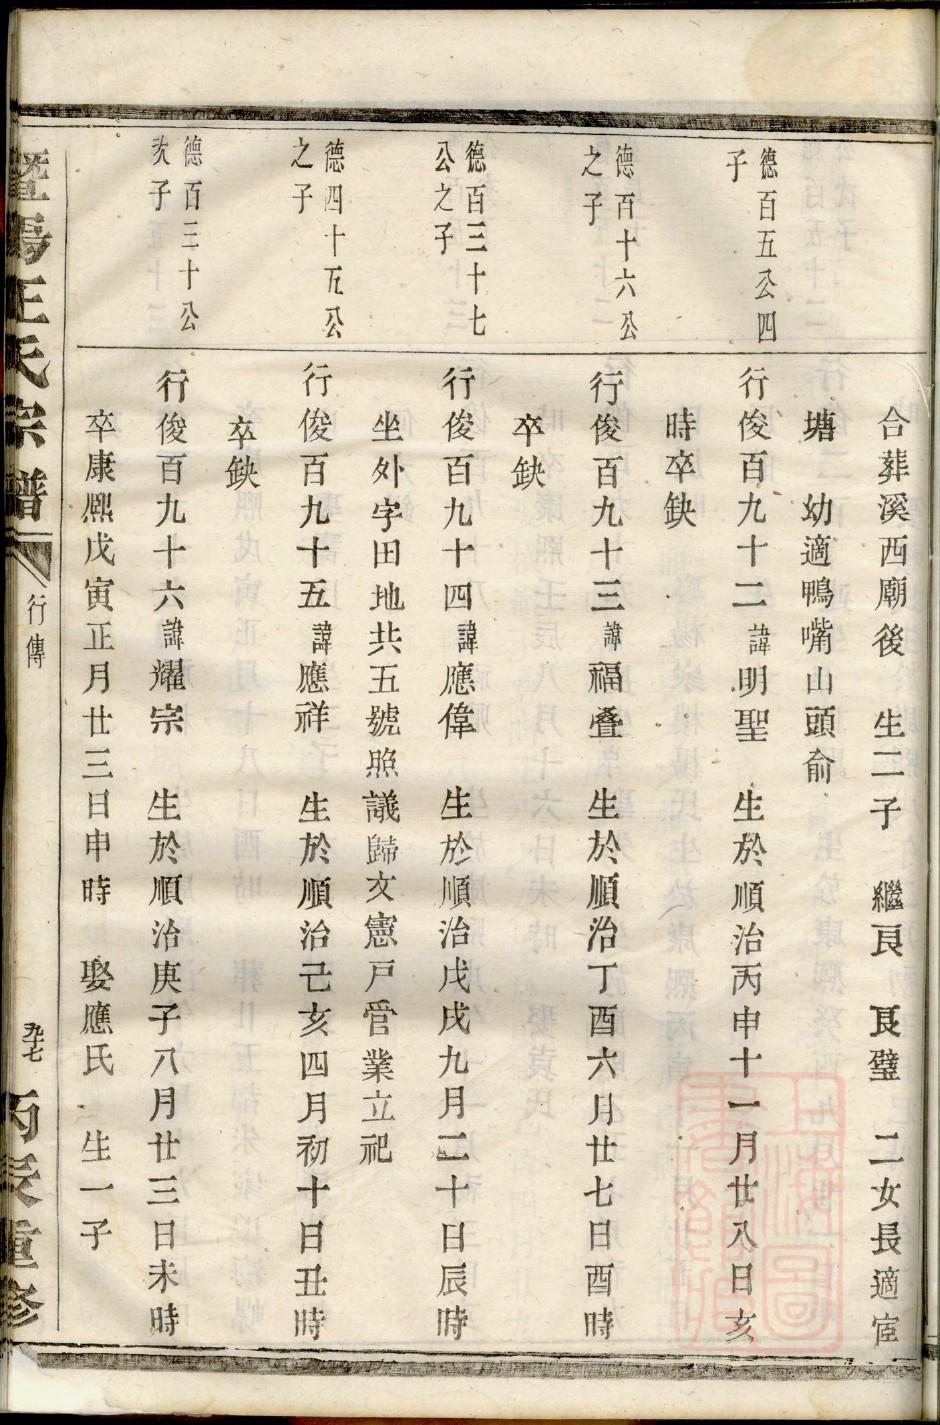 合葬溪西廟後　生二子　繼良　良璧　二女長適宦
塘　幼適鴨嘴山頭俞
德百五公四
子
行俊百九十二諱明聖　生於順治丙申十一月廿八日亥
時卒缺
德百十六公
之子
行俊百九十三諱福叠　生於順治丁酉六月廿七日酉時
卒缺
德百三十七
公之子
行俊百九十四諱應偉　生於順治戊戌九月二十日辰時
坐外字田地共五號照議歸文憲戸管業立祀
德四十五公
之子
行俊百九十五諱應祥　生於順治己亥四月初十日丑時
卒缺
德百三十公
次子
行俊百九十六諱耀宗　生於順治庚子八月廿三日未時
卒康熙戊寅正月廿三日申時　娶應氏　生一子
暨陽王氏宗譜　行傳　丙辰重修